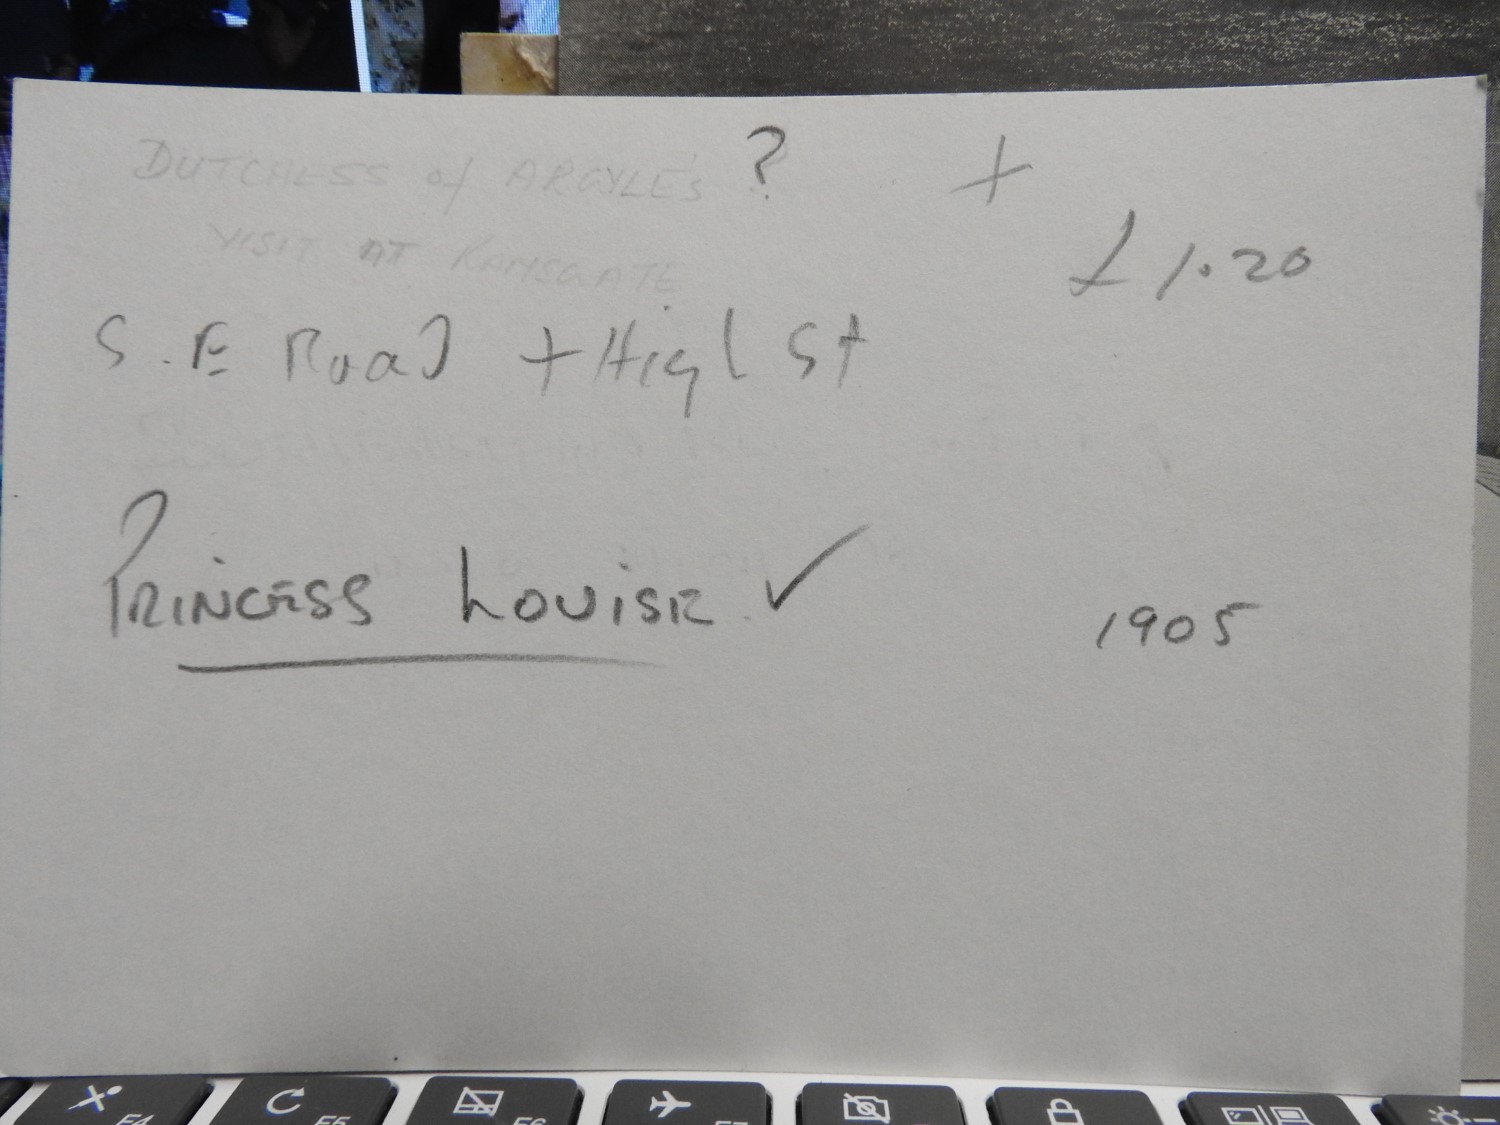 DUTCHESS of ARGYLE'S ?
+
VISIT AT RAMSGATE
£1.20
S.E Road + High St
PRINCESS LOUISE ✓
1905
F4 F5 F6 F7